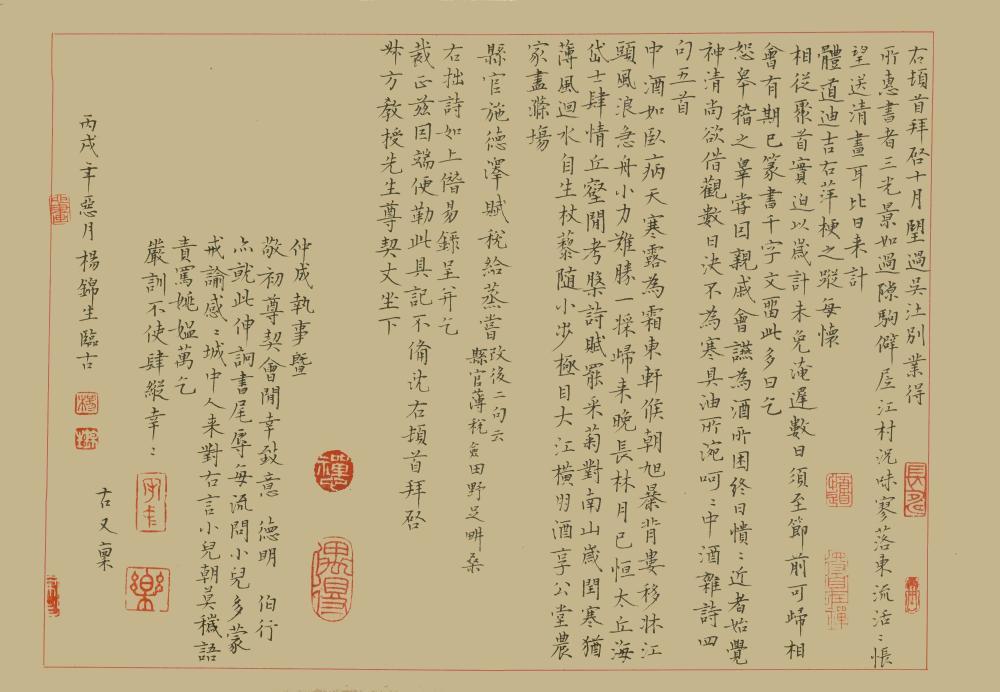 右頓首拜啓十月朢過吳江別業得
所惠書者三光景如過隙駒僻居江村況味寥落東流活〻悵
望送清晝耳比日来計
體道迪吉右萍梗之蹤每懷
相從聚首實迫以歲計未免淹遲數日須至節前可歸相
會有期已篆書千字文畱此多日乞
恕皋稽之辠嘗因親戚會讌為酒所困終日憒〻近者始覺
神清尚欲借觀數日決不為寒具油所涴呵〻中酒雜詩四
句五首
中酒如臥病天寒露為霜東軒候朝旭暴背婁移牀江
頭風浪急舟小力難勝一採歸来晚長林月已恒太丘海
岱士肆情丘壑閒考槃詩賦罷采菊對南山歲閏寒猶
薄風迴水自生杖藜随小步極目大江橫朋酒享公堂農
家盡滌場
縣官施德澤賦稅給蒸嘗
改後二句云
縣官薄稅斂田野足畊桑
右拙詩如上僭易錄呈并乞
裁正茲因端便勒此具記不備沈右頓首拜啓
方教授先生尊契丈坐下
仲成執事暨
敬初尊契會閒幸致意 德明 伯行
亦就此伸訶書尾辱每流問小兒多蒙
戒諭感〻城中人来對右言小兒朝莫穢語
責罵姚媪萬乞
嚴訓不使肆縱幸〻
右又稟
丙戌年惡月楊錦生臨古
樂